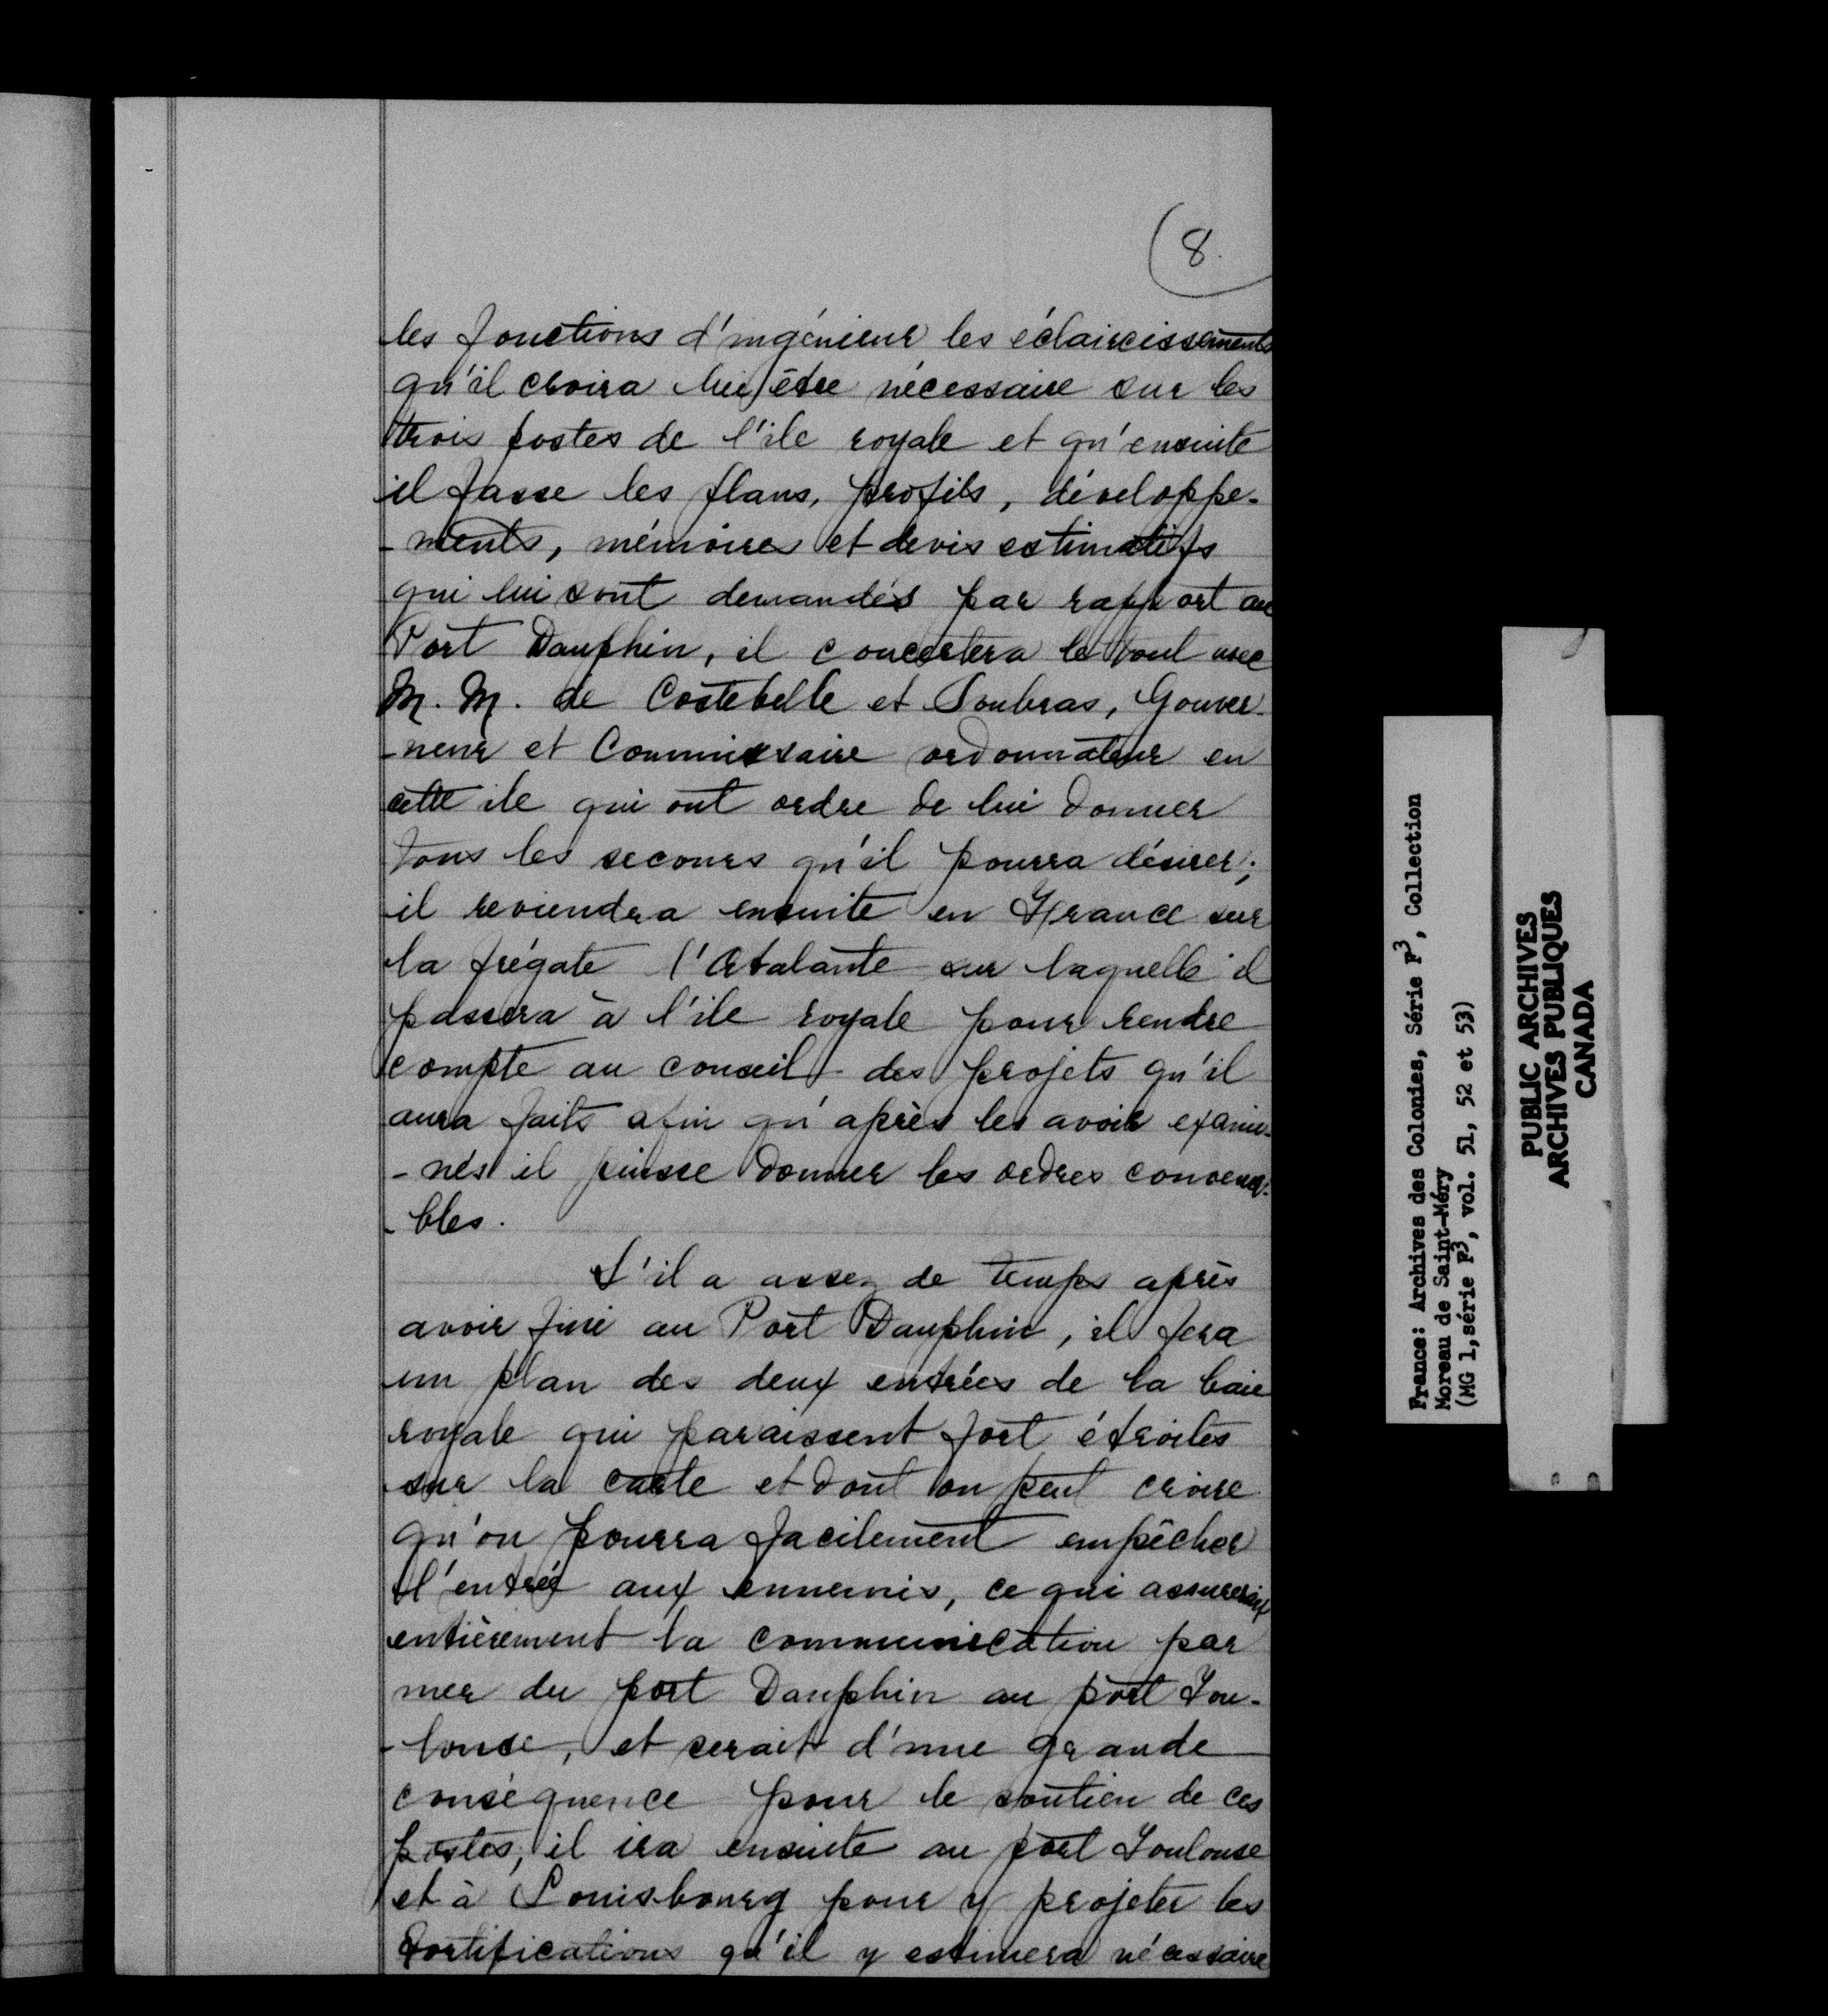 8.
les fonctions d'ingénieur les éclaircissements
qu'il croira lui être nécessaire sur les
trois postes de l'ile royale et qu'ensuite
il fasse les plans, profils, développe-
-ments, mémoires et devis estimatifs
qui lui sont demandés par rapport au
Port Dauphin, il concertera le tout avec
M. M. de Costebelle et Soubras, Gouver-
-neur et Commissaire ordonnateur en
cette ile qui ont ordre de lui donner
tous les secours qu'il pourra désirer;
il reviendra ensuite en France sur
la frégate l'Atalante sur laquelle il
passera à l'ile royale pour rendre
compte au conseil des projets qu'il
aura faits afin qu'après les avoir exami-
-nés il puisse donner les ordres convena-
-bles.
S'il a assez de temps après
avoir fini au Port Dauphin, il fera
un plan des deux entrées de la baie
royale qui paraissent fort étroites
sur la carte et dont on peut croire
qu'on pourra facilement empêcher
l'entrée aux ennemis, ce qui assurerait
entièrement la communication par
mer du port Dauphin au port Tou-
-louse, et serait d'une grande
conséquence pour le soutien de ces
postes; il ira ensuite au port Toulouse
et à Louisbourg pour y projeter les
fortifications qu'il y estimera nécessaire
France: Archives des Colonies, Série F3, Collection
Moreau de Saint-Méry
(MG 1,série F3, vol. 51, 52 et 53)
PUBLIC ARCHIVES
ARCHIVES PUBLIQUES
CANADA